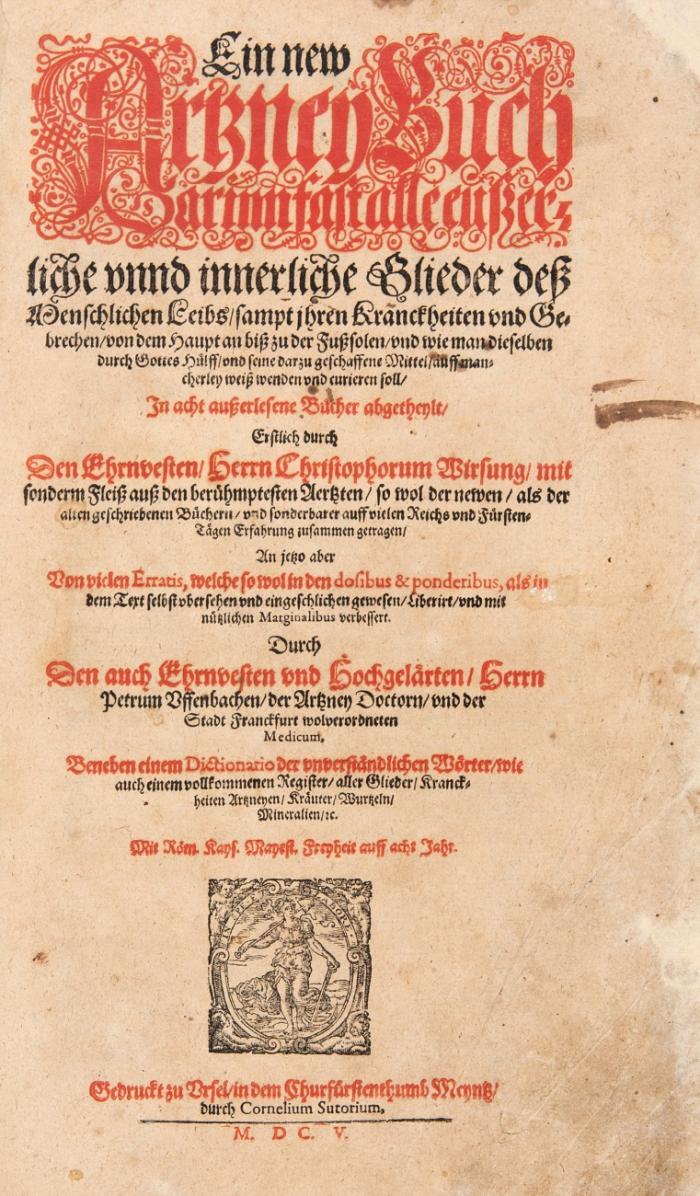 Ein new
Artzney Buch
Darinn fast alle eusser⸗
liche vnnd innerliche Glieder deß
Menschlichen Leibs/sampt jhren Kranckheiten vnd Ge⸗
brechen/von dem Haupt an biß zu der Fußsolen/vnd wie man dieselben
durch Gottes Hülff/vnd seine darzu geschaffene Mittel/auff man⸗
cherley weiß wenden vnd curieren soll/
In acht außerlesene Bücher abgetheylt/
Erstlich durch
Den Ehrnvesten/ Herrn Christophorum Wirsung/ mit
sonderm Fleiß auß den berühmptesten Aertzten/ so wol der newen/ als der
alten geschriebenen Büchern/ vnd sonderbarer auff vielen Reichs vnd Fürsten⸗
Tägen Erfahrung zusammen getragen/
An jetzo aber
Von vielen Erratis, welche so wol in den dosibus & ponderibus, als in
dem Text selbst vbersehen vnd eingeschlichen gewesen/Liberirt/vnd mit
nützlichen Marginalibus verbessert.
Durch
Den auch Ehrnvesten vnd Hochgelärten/ Herrn
Petrum Vffenbachen/der Artzney Doctorn/vnd der
Stadt Franckfurt wolverordneten
Medicum.
Beneben einem Dictionario der vnverständlichen Wörter/wie
auch einem vollkommenen Register/ aller Glieder/ Kranck⸗
heiten Artzneyen/ Kräuter/ Wurtzeln/
Mineralien/ꝛc.
Mit Röm. Kays. Mayest. Freyheit auff acht Jahr.
Gedruckt zu Vrsel/in dem Churfürstenthumb Meyntz/
durch Cornelium Sutorium.
M. D C. V.